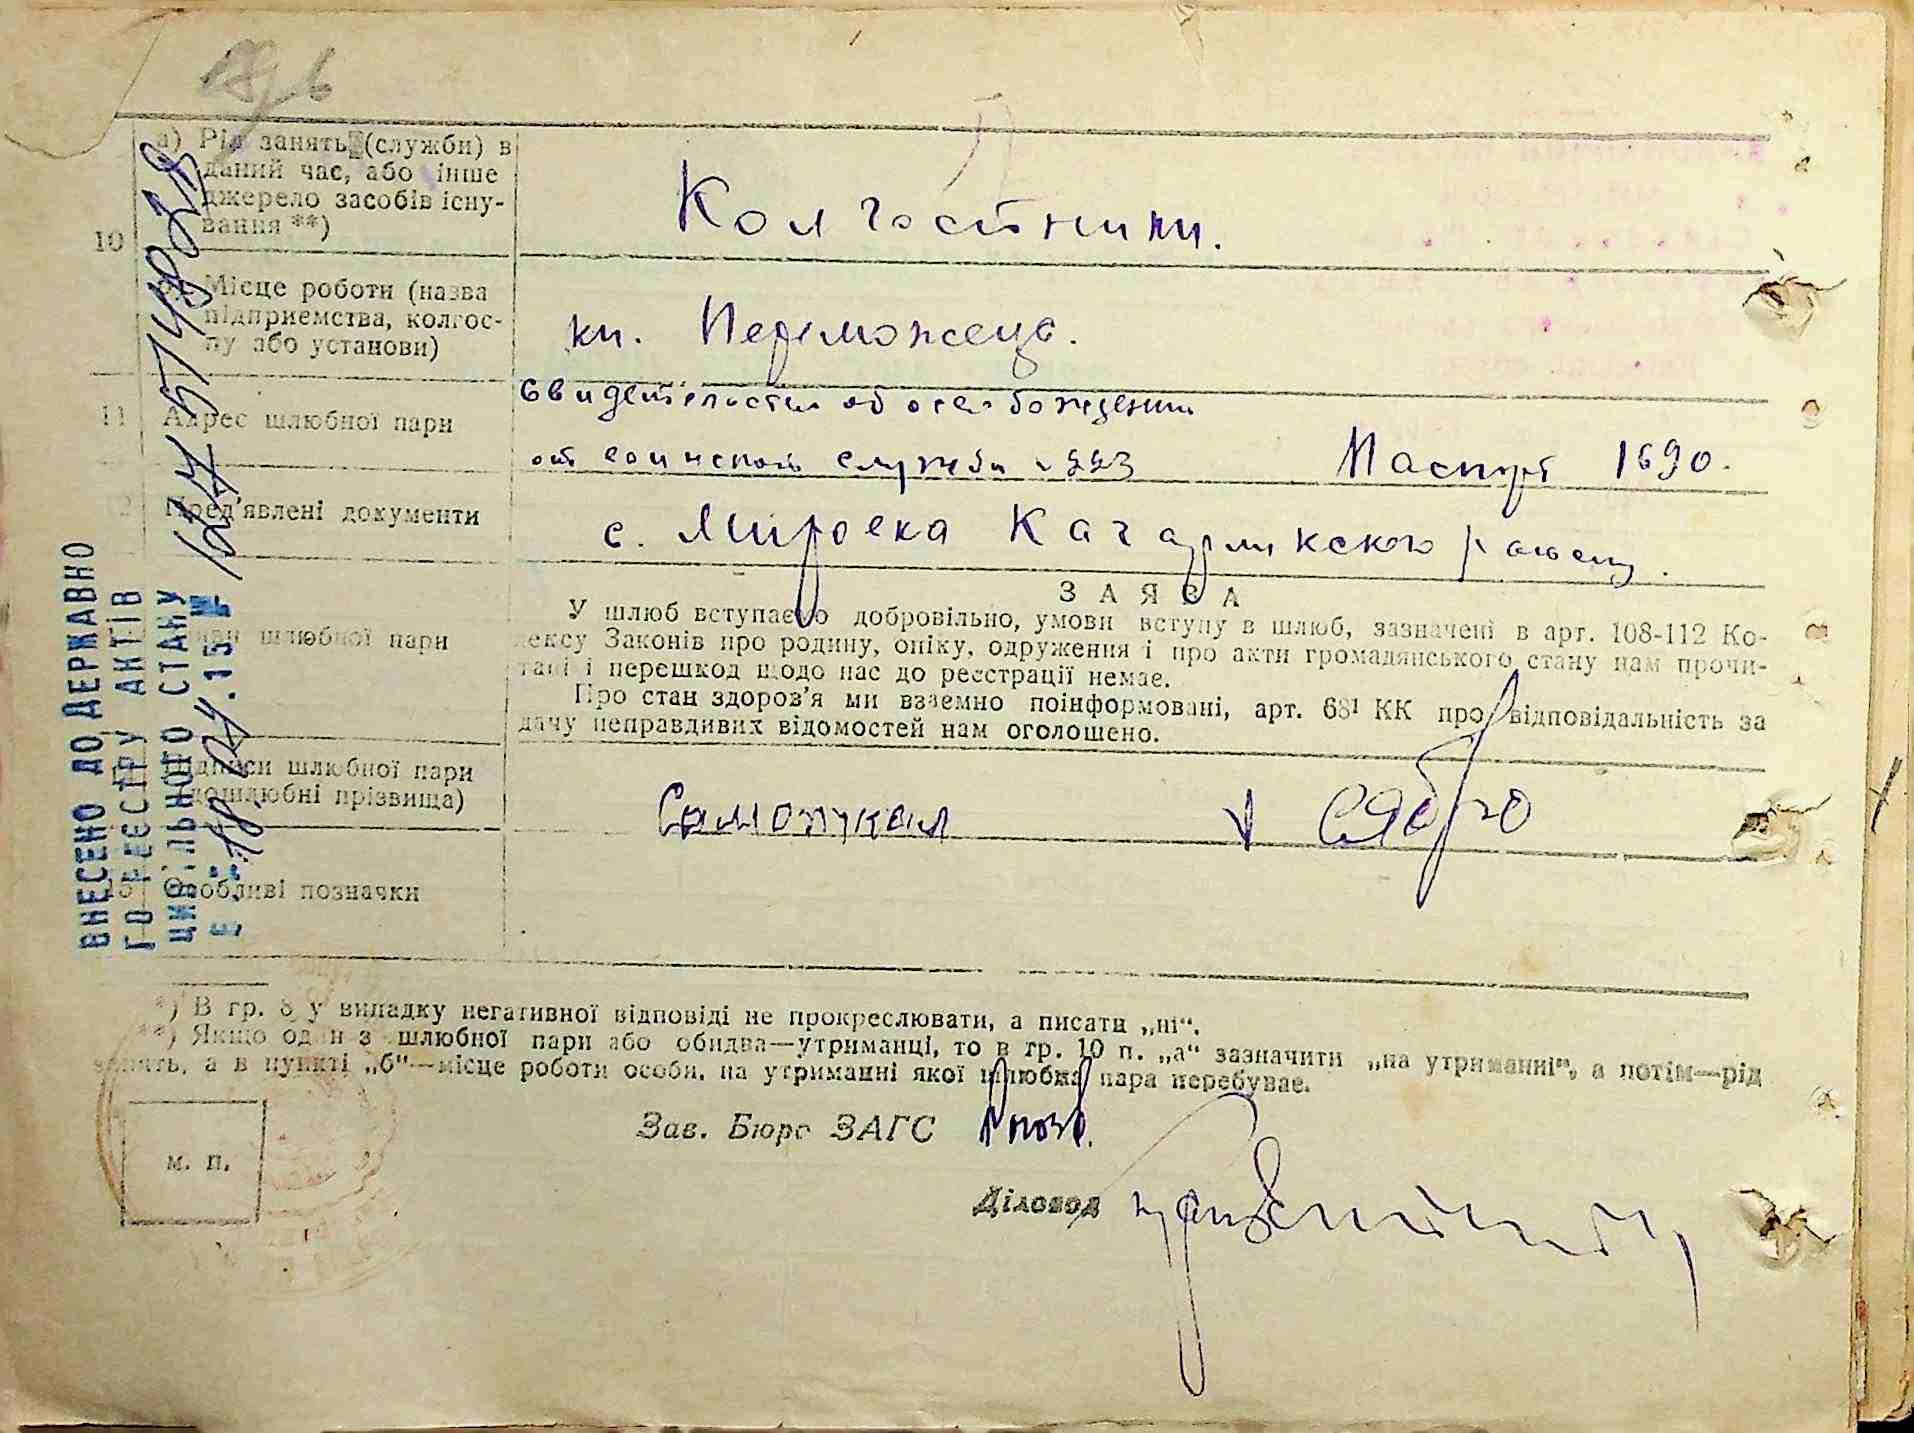 а) Рід занять (служби) в
даний час, або інше
джерело засобів існу-
вання **)
Колгостники.
10
Місце роботи (назва
підприємства, колгос-
пу або установи)
кп. Переможець.
11 Адрес шлюбної пари
свидетельство об освобождении
от воинской службы Паспорт 1690.
Пред'явлені документи
с. Мировка Кагарликского района.
шлюбної пари
ЗАЯВА
У шлюб вступаємо добровільно, умови вступу в шлюб, зазначені в арт. 108-112 Ко-
дексу Законів про родину, опіку, одруження і про акти громадянського стану нам прочи-
тані і перешкод щодо нас до реєстрації немає.
Про стан здоров'я ми взаємно поінформовані, арт. 68¹ КК про відповідальність за
дачу неправдивих відомостей нам оголошено.
Підписи шлюбної пари
(дошлюбні прізвища)
Особливі позначки
ВНЕСЕНО ДО ДЕРЖАВНО
ГО РЕЄСТРУ АКТІВ
ЦИВІЛЬНОГО СТАНУ
*) В гр. 8 у випадку негативної відповіді не прокреслювати, а писати „ні“.
**) Якщо один з шлюбної пари або обидва—утриманці, то в гр. 10 п. „а“ зазначити „на утриманні“, а потім—рід
занять, а в пункті „б“—місце роботи особи, на утриманні якої шлюбна пара перебуває.
Зав. Бюро ЗАГС
м. п.
Діловод